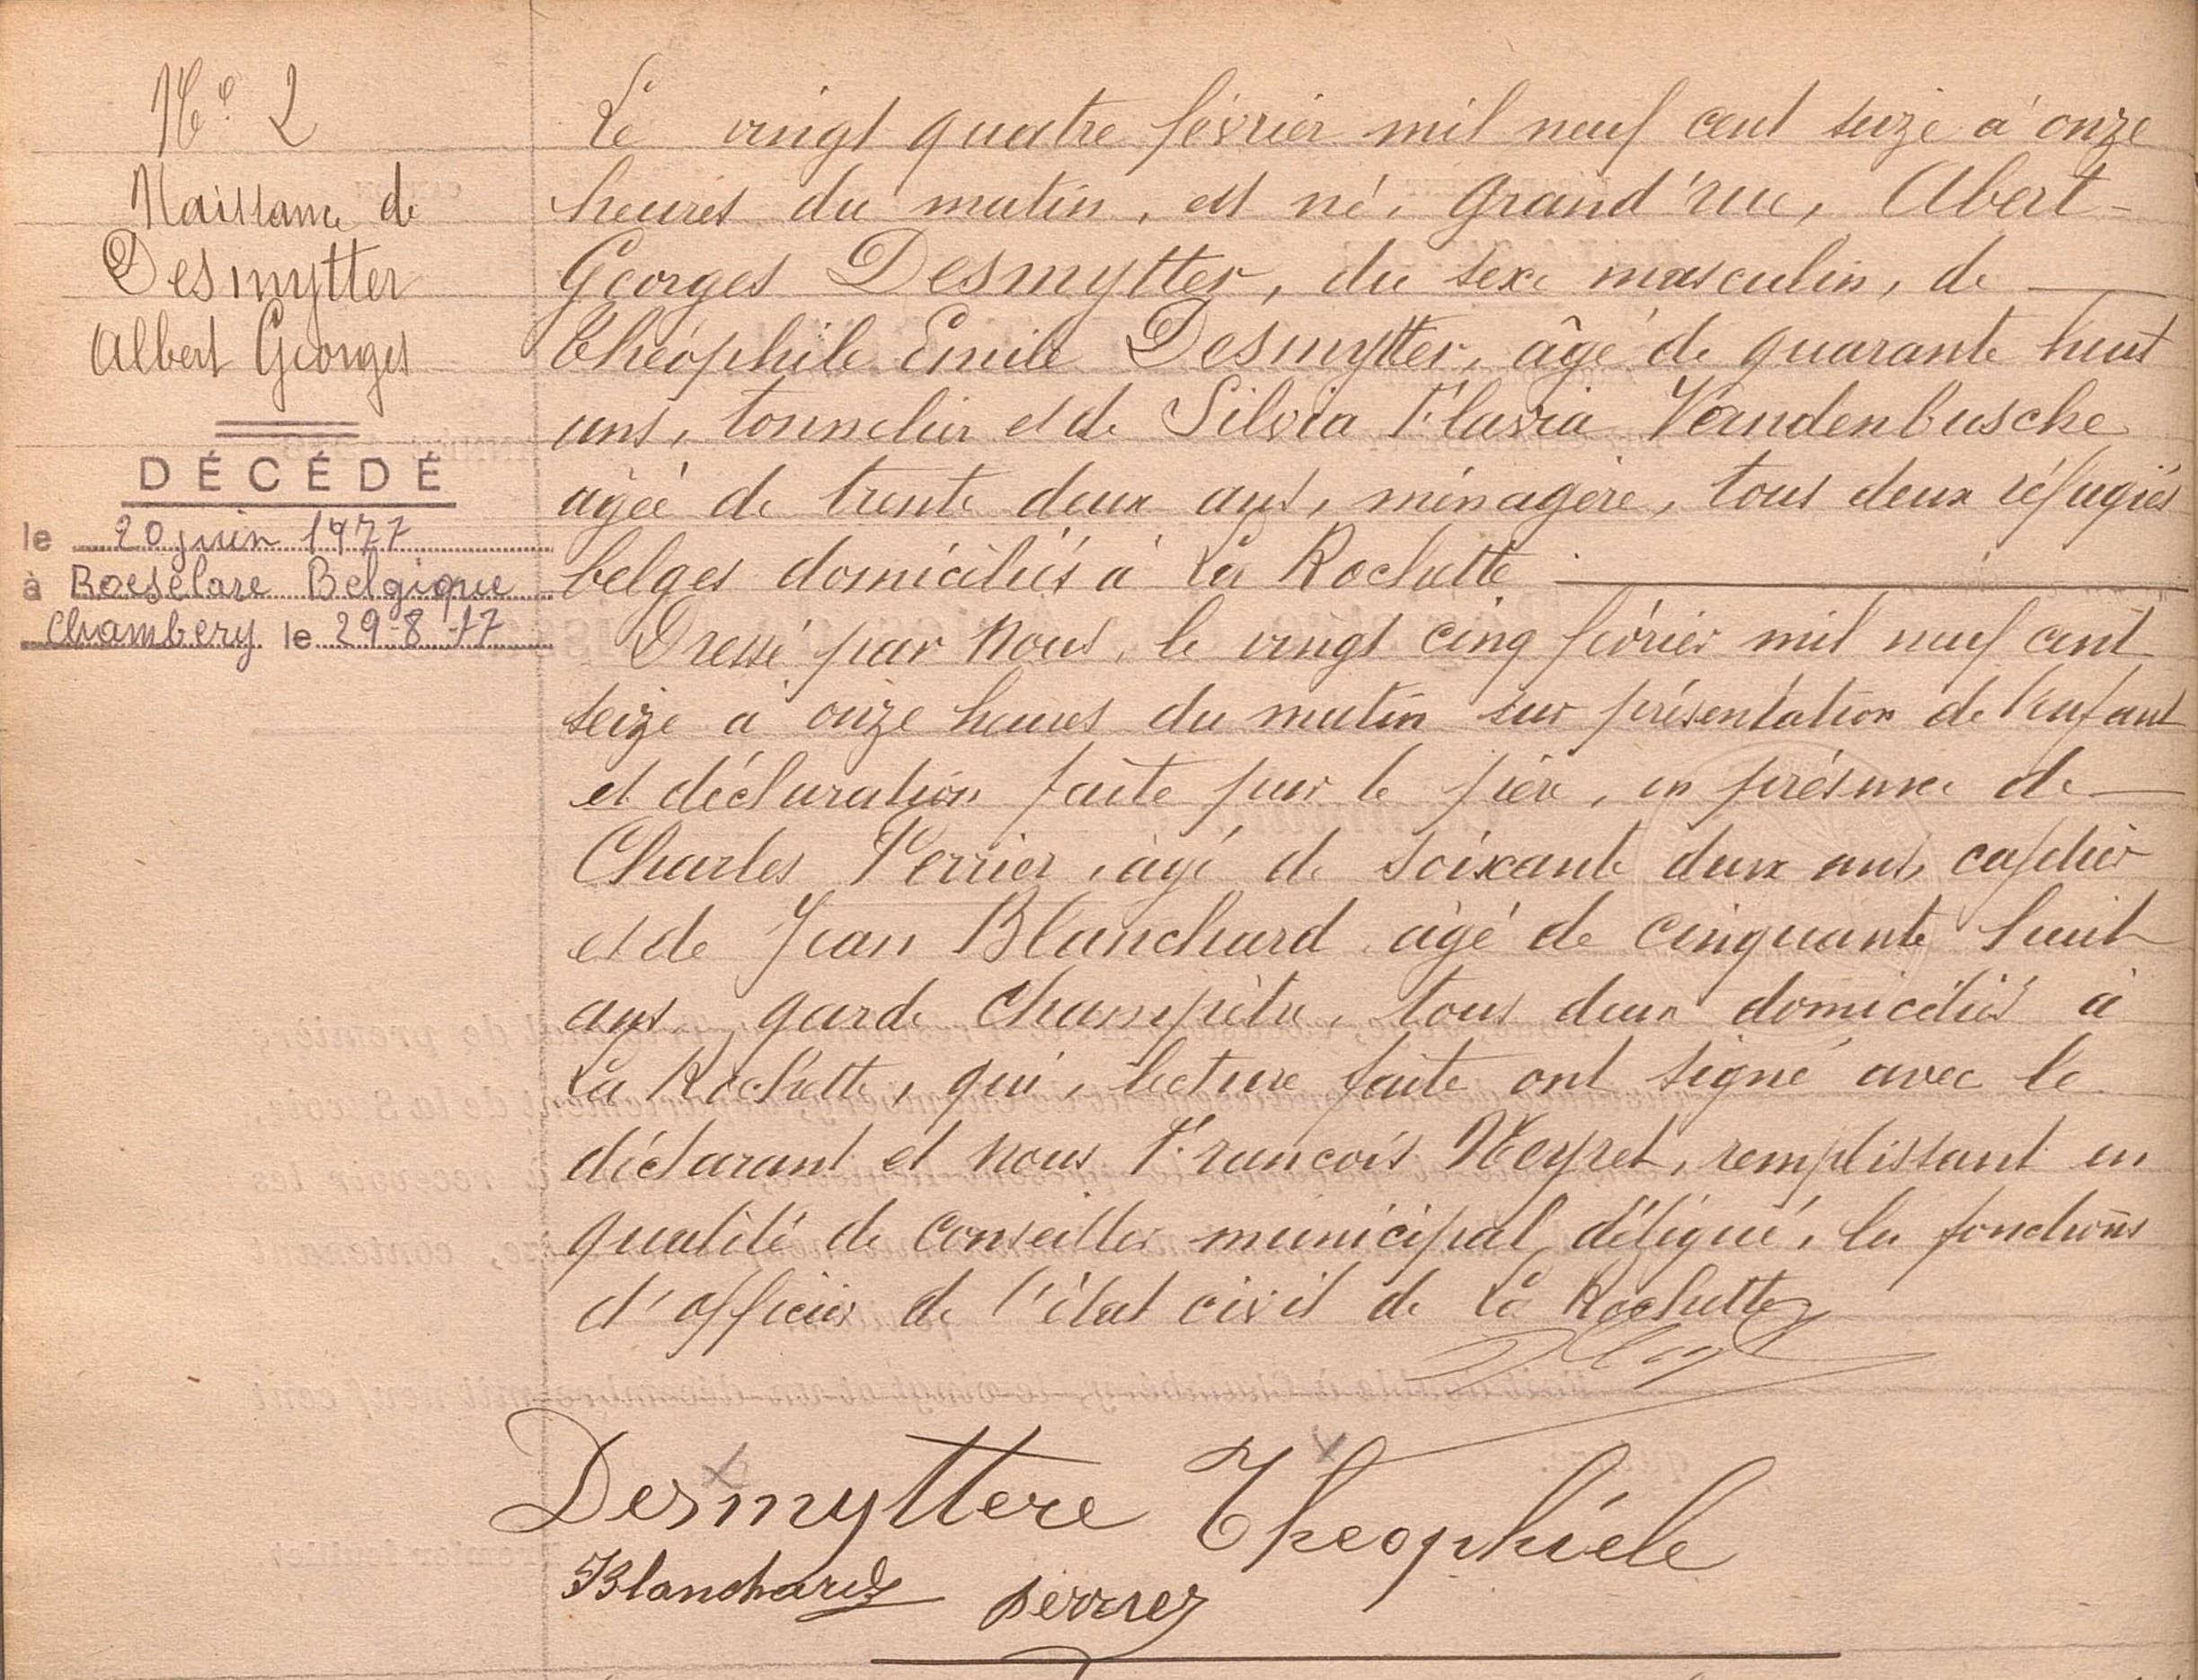 No. 2
Naissance de
Desmytter
Albert Georges
DÉCÉDÉ
le 20 juin 1977
à Roeselare Belgique
Chambery le 29-8-77
Le vingt quatre février mil neuf cent seize à onze
heures du matin, est né, Grand'rue, Abert-
Georges Desmytter, du sexe masculin, de
Théophile Emile Desmytter, âgé de quarante huit
ans, tonnelier et de Silvia Flavia Vandenbusche
agée de trente deux ans, ménagère, tous deux réfugiés
belges domiciliés à La Rochette
Dressé par Nous, le vingt cinq février mil neuf cent
seize à onze heures du matin sur présentation de l'enfant
et déclaration faite par le père, en présence de
Charles Perrier, âgé de soixante deux ans, cafetier
et de Jean Blanchard âgé de cinquante huit
ans, garde champêtre, tous deux domiciliés à
La Rochette, qui, lecture faite ont signé avec le
déclarant et nous François Neyret, remplissant en
qualité de conseiller municipal, délégué, les fonctions
d'officier de l'état civil de La Rochette
Desmyttere Theophiele
Blanchard perrier